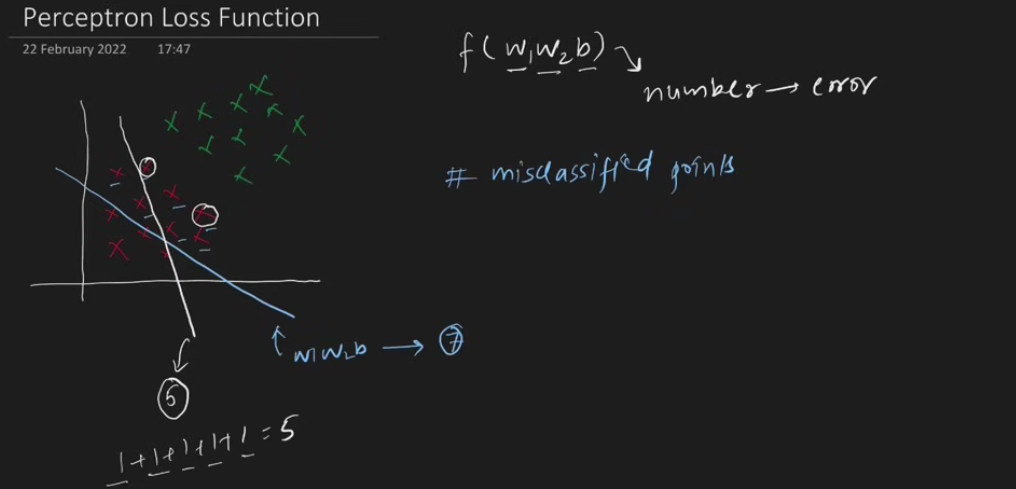 Perceptron Loss Function
22 February 2022 17:47
f(w₁w₂b)
number → error
# misclassified points
w₁w₂b → 7
5
1+1+1+1+1=5